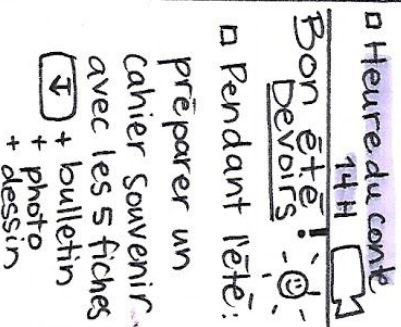 □ Heure du conte
14H
Bon été !
Devoirs
□ Pendant l'été:
préparer un
cahier souvenir
avec les 5 fiches
+ bulletin
+ photo
+ dessin